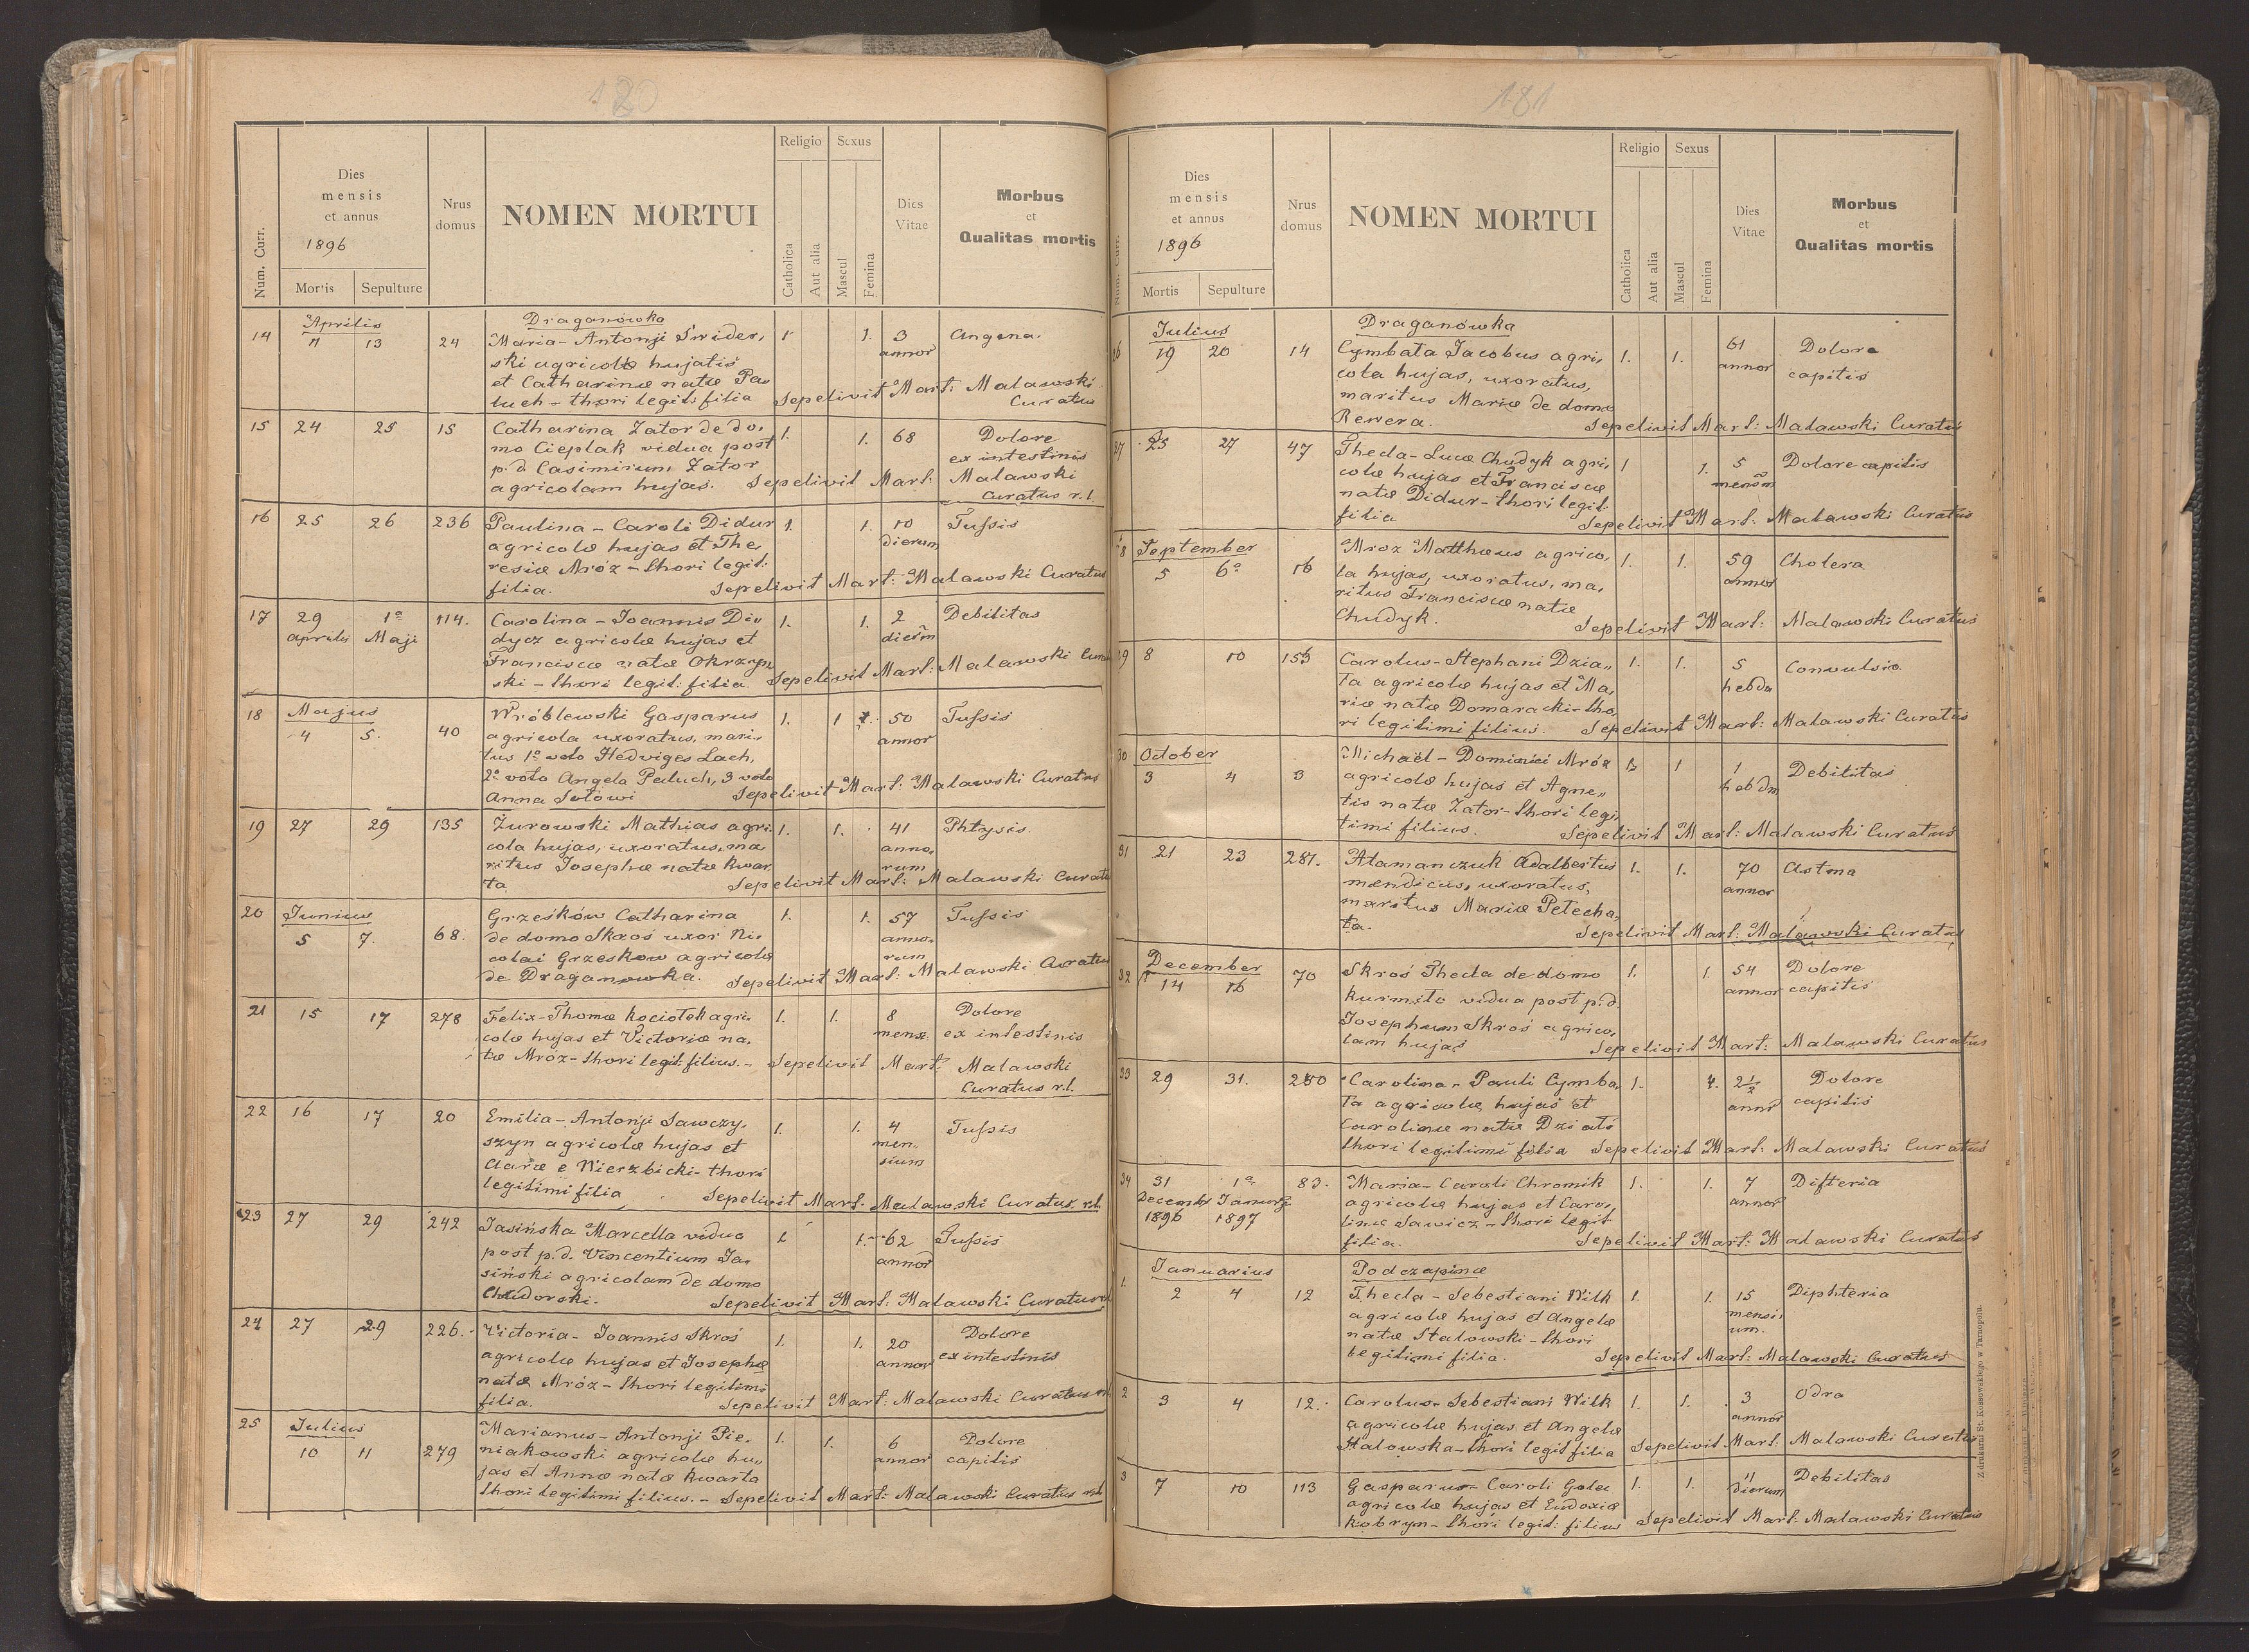 120
Num. Curr.
Dies
mensis
et annus
1896
Mortis
Sepulture
Nrus
domus
NOMEN MORTUI
Religio
Catholica
Aut alia
Sexus
Mascul
Femina
Dies
Vitae
Morbus
et
Qualitas mortis
Draganówka
14 Aprilis 13 24 Maria - Antonji Świder, 1 1. 3 Angena.
ski agricolæ hujatis annor
et Catharinæ natæ Pa,
luch - thori legit: filia Sepelivit Mart: Malawski
Curatus
15 24 25 15 Catharina Zator de do, 1. 1. 68 Dolore
mo Cieplak vidua post ex intestinis
p.d Casimirum Zator
agricolam hujas. Sepelivit Mart: Malawski
Curatus r.l.
16 25 26 236 Paulina - Caroli Didur 1. 1. 10 Tussis
agricolæ hujas et The, dierum
resiæ Mróz - thori legit:
filia. Sepelivit Mart: Malawski Curatus
17 29 1a 114. Carolina - Joannis Di, 1. 1. 2 Debilitas
Aprilis Maji dycz agricolæ hujas et
Franciscæ natæ Okrzyn
ski - thori legit: filia Sepelivit Mart: Malawski
18 Majus
4 5. 40 Wróblewski Gasparus 1. 1 50 Tussis
agricola uxoratus, mari, annor
tus 1o voto Hedviges Lach,
2o voto Angela Paluch, 3 voto
Anna Sołowi Sepelivit Mart: Malawski Curatus
19 27 29 135 Żurowski Mathias agri, 1. 1. 41 Phtysis.
cola hujas, uxoratus, ma anno,
ritus Josephæ natæ Kwar rum
ta. Sepelivit Mart: Malawski
20 Junius
5 7. 68. Grześków Catharina 1. 1. 57 Tussis
de domo Skroś uxor Ni, anno,
colai Grzeskow agricolæ rum
de Draganowka. Sepelivit Mart: Malawski Curatus
21 15 17 278 Felix - Thomæ Kociołek agri, 1. 1. 8 Dolore
colæ hujas et Victoriæ na, mens. ex intestinis
tæ Mróz - thori legit: filius. - Sepelivit Mart: Malawski
Curatus r.l.
22 16 17 20 Emilia - Antonji Sawczy, 1. 1. 4 Tussis
szyn agricolæ hujas et men,
Claræ e Wierzbicki - thori sium
legitimi filia Sepelivit Mart: Malawski Curatus r.l.
23 27 29 242 Jasińska Marcella vidua 1 1. 62 Tussis
post p.d. Vincentium Ja, annor
siński agricolam de domo
Chudorski. Sepelivit Mart: Malawski Curatus
24 27 29 226. Victoria - Joannis Skroś 1. 1. 20 Dolore
agricolæ hujas et Josephæ annor ex intestinis
natæ Mróz - thori legitimi
filia. Sepelivit Mart: Malawski Curatus
25 Julius
10 11 279 Marianus - Antonji Pie, 1. 1. 6 Dolore
niakowski agricolæ hu, annor capitis
jas et Annæ natæ Kwarta
thori legitimi filius. - Sepelivit Mart: Malawski Curatus r.l.
181
Num. Curr.
Dies
mensis
et annus
1896
Mortis
Sepulture
Nrus
domus
NOMEN MORTUI
Religio
Catholica
Aut alia
Sexus
Mascul
Femina
Dies
Vitae
Morbus
et
Qualitas mortis
Julius Draganówka
26 19 20 14 Cymbała Jacobus agri, 1. 1. 61 Dolore
cola hujas, uxoratus, annor capitis
maritus Mariæ de domo
Rewera. Sepelivit Mart: Malawski Curatus
27 25 27 47 Thecla - Lucæ Chudyk agri, 1 1. 5 Dolore capitis
colæ hujas et Franciscæ mensm
natæ Didur - thori legit:
filia Sepelivit Mart: Malawski Curatus
28 September
5 6a 16 Mroz Matthæus agrico, 1. 1. 59 Cholera
la hujas, uxoratus, ma, annor
ritus Franciscæ natæ
Chudyk. Sepelivit Mart: Malawski Curatus
29 8 10 153 Carolus - Stephani Dzia, 1. 1. 5 Convulsio
ła agricolæ hujas et Ma, hebda
riæ natæ Domaracki - tho,
ri legitimi filius. Sepelivit Mart: Malawski Curatus
30 October
3 4 3 Michaël - Dominici Mróz 1. 1 1 Debilitas
agricolæ hujas et Agne, hebdm
tis natæ Zator - thori legi,
timi filius. Sepelivit Mart: Malawski Curatus
31 21 23 287. Atamanczuk Adalbertus 1. 1. 70 Astma
mendicus, uxoratus, annor
maritus Mariæ Petecha,
ta. Sepelivit Mart: Malawski Curatus
32 December
14 16 70 Skroś Thecla de domo 1. 1. 54 Dolore
Kurmiło vidua post p.d. annor capitis
Josephum Skroś agrico,
lam hujas Sepelivit Mart: Malawski Curatus
33 29 31. 250 Carolina - Pauli Cymba, 1. 1. 2½ Dolore
ła agricolæ hujas et anni capitis
Carolinæ natæ Działo
thori legitimi filia Sepelivit Mart: Malawski Curatus
34 31 1a 83. Maria - Caroli Chromik 1. 1. 7 Difteria
Decembr Januar agricolæ hujas et Caro, annor
1896 1897 linæ Sawicz - thori legit
filia. Sepelivit Mart: Malawski Curatus
Januarius Podczapinæ
1. 2 4 12 Thecla - Sebestiani Wilk 1. 1. 15 Diphteria
agricolæ hujas et Angelæ mensi,
natæ Stalowski - thori um.
legitimi filia. Sepelivit Mart: Malawski Curatus
2 3 4 12. Carolus - Sebestiani Wilk 1. 1. 3 Odra
agricolæ hujas et Angelæ annor
Stalowska - thori legit filia Sepelivit Mart: Malawski Curatus
3 7 10 113 Gasparus - Caroli Galea 1. 1. 11 Debilitas
agricolæ hujas et Eudoxiæ dierum
Kobryn - thori legit: filius Sepelivit Mart: Malawski Curatus
Z drukarni St. Kossowskiego w Tarnopolu.